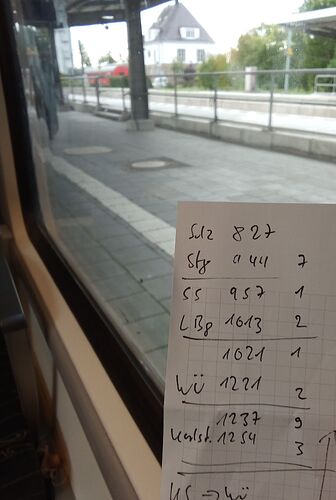 Sulz 827
Stg "44 7
SS 957 1
LBg 1013 2
1021 1
Wü 1221 2
1237 9
Karlst. 1254 3
KS → Wü